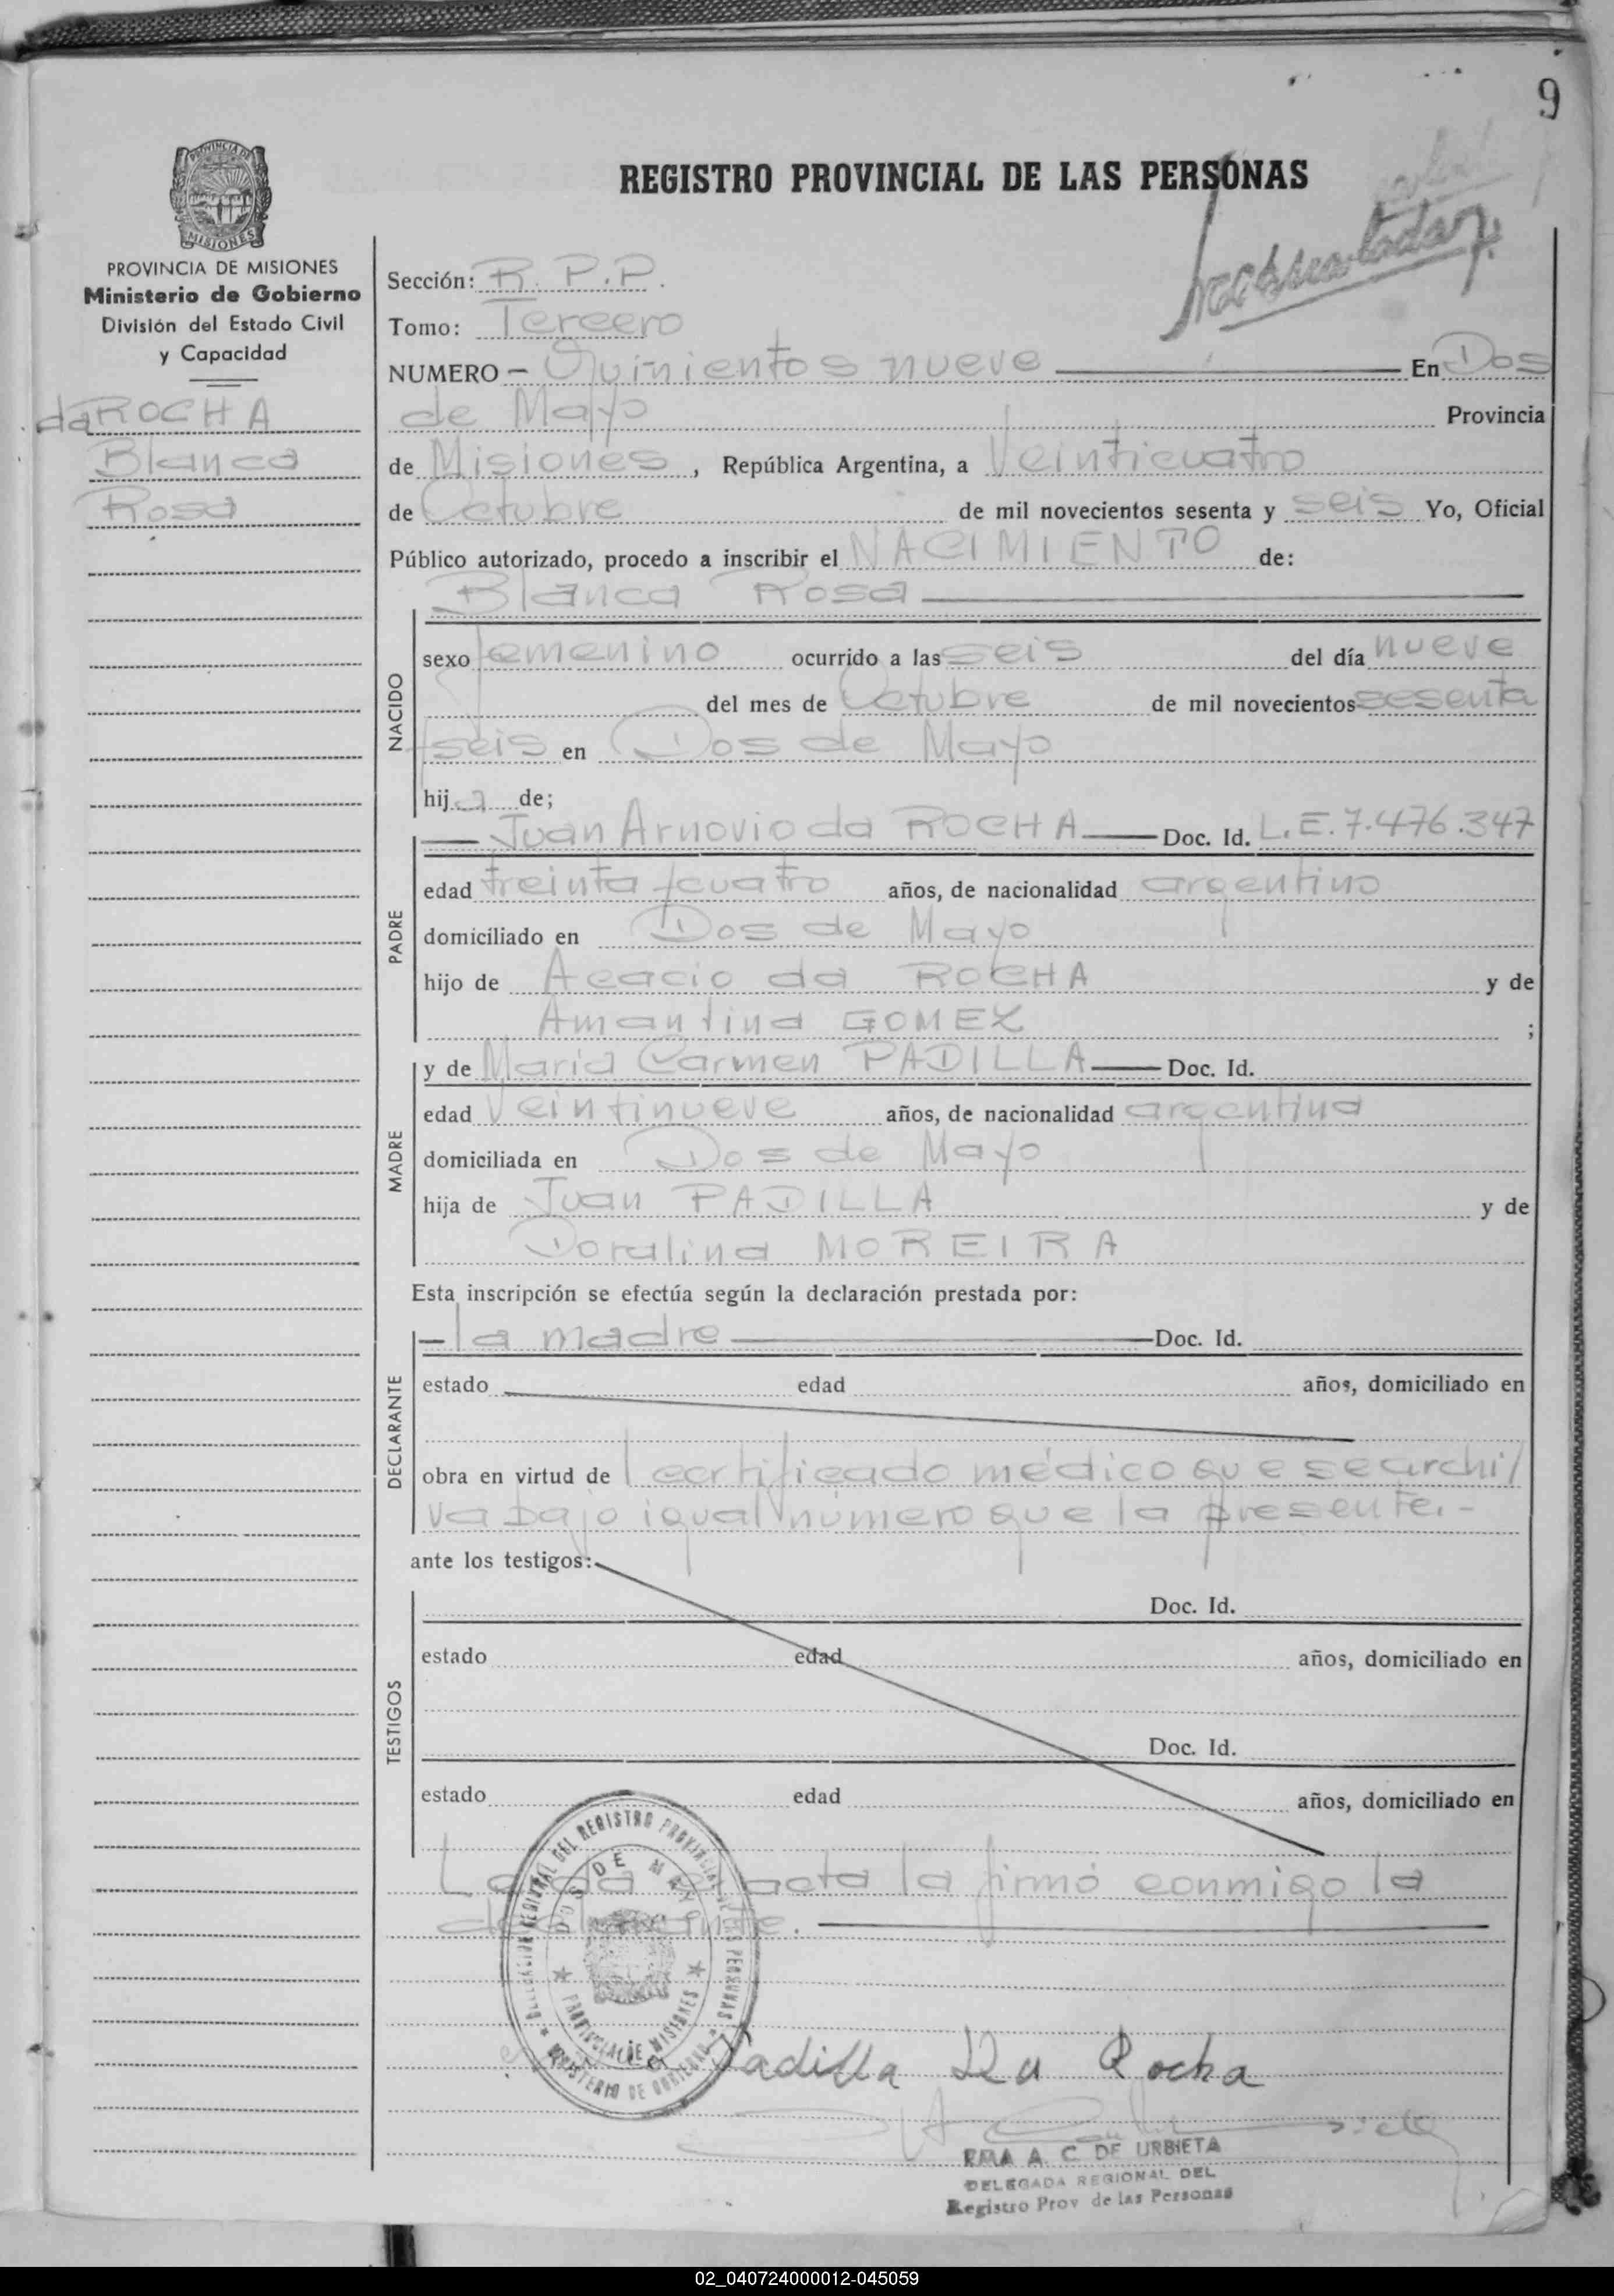 9
REGISTRO PROVINCIAL DE LAS PERSONAS
PROVINCIA DE
MISIONES
PROVINCIA DE MISIONES
Ministerio de Gobierno
División del Estado Civil
y Capacidad
da ROCHA
Blanca
Rosa
Sección: R. P. P.
Tomo: Tercero
NUMERO – Quinientos nueve En Dos
de Mayo Provincia
de Misiones, República Argentina, a Veinticuatro
de Octubre de mil novecientos sesenta y seis Yo, Oficial
Público autorizado, procedo a inscribir el NACIMIENTO de:
Blanca Rosa
NACIDO
sexo femenino ocurrido a las seis del día nueve
del mes de Octubre de mil novecientos sesenta
y seis en Dos de Mayo
hija de;
PADRE
Juan Arnovio da ROCHA Doc. Id. L.E. 7.476.347
edad treinta y cuatro años, de nacionalidad argentino
domiciliado en Dos de Mayo
hijo de Acacio da ROCHA y de
Amantina GOMEZ ;
MADRE
y de Maria Carmen PADILLA Doc. Id.
edad Veintinueve años, de nacionalidad argentina
domiciliada en Dos de Mayo
hija de Juan PADILLA y de
Doralina MOREIRA
Esta inscripción se efectúa según la declaración prestada por:
DECLARANTE
- la madre Doc. Id.
estado edad años, domiciliado en
obra en virtud de certificado médico que se archi/
va bajo igual número que la presente.-
ante los testigos:
TESTIGOS
Doc. Id.
estado edad años, domiciliado en
Doc. Id.
estado edad años, domiciliado en
acta la firmó conmigo la
DEL REGISTRO PROVINCIAL DE LAS PERSONAS
DOS DE MAYO
MISIONES
MINISTERIO DE GOBIERNO
Padilla Da Rocha
A. C. DE URBIETA
DELEGADA REGIONAL DEL
Registro Prov de las Personas
02_040724000012-045059